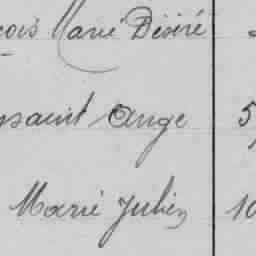 çois Marie Désiré
ssaint Ange 5
Marie Julien 10